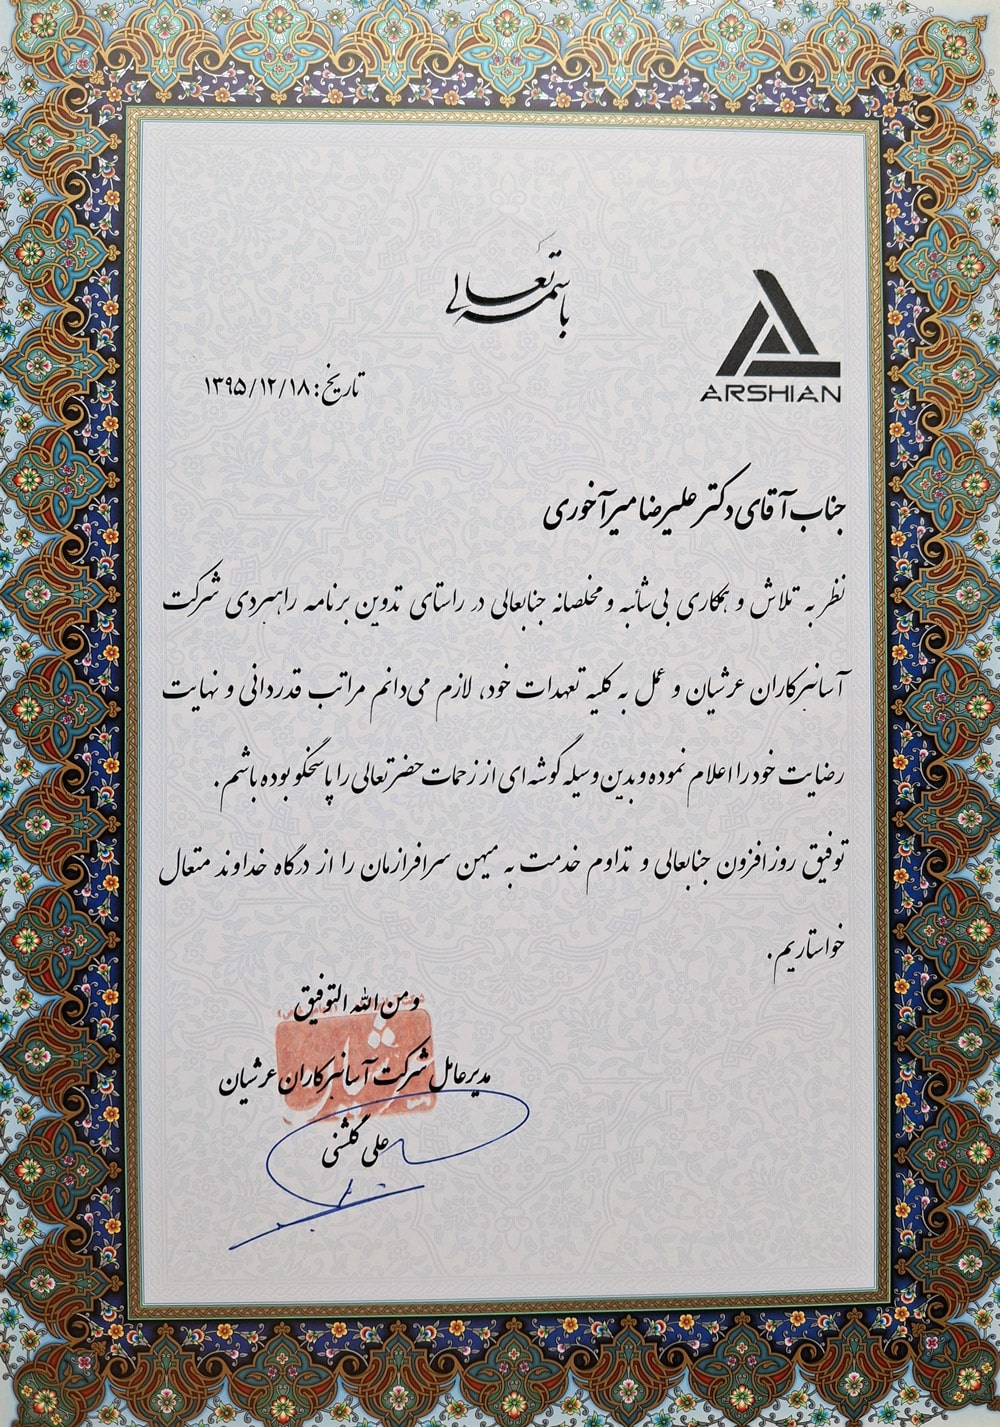 باسمه تعالی
ARSHIAN
تاریخ: ۱۳۹۵/۱۲/۱۸
جناب آقای دکتر علیرضا میرآخوری
نظر به تلاش و همکاری بی‌شائبه و مخلصانه جنابعالی در راستای تدوین برنامه راهبردی شرکت
آسانبرکاران عرشیان و عمل به کلیه تعهدات خود، لازم می‌دانم مراتب قدردانی و نهایت
رضایت خود را اعلام نموده و بدین وسیله گوشه ای از زحمات حضرتعالی را پاسخگو بوده باشم.
توفیق روز افزون جنابعالی و تداوم خدمت به میهن سرافرازمان را از درگاه خداوند متعال
خواستاریم.
ومن الله التوفیق
مدیرعامل شرکت آسانبرکاران عرشیان
علی گلشنی